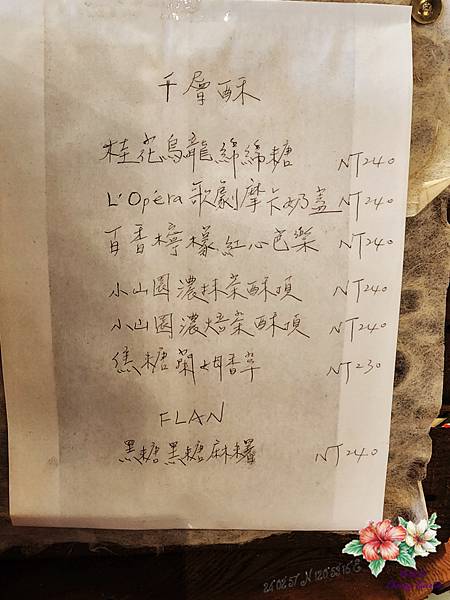 千層酥
桂花烏龍綿綿糖 NT240
L'Opéra 歌劇摩卡奶蓋 NT240
百香檸檬紅心芭樂 NT240
小山園濃抹茶酥頂 NT240
小山園濃焙茶酥頂 NT240
焦糖蘭姆香草 NT230
FLAN
黑糖黑糖麻糬 NT240